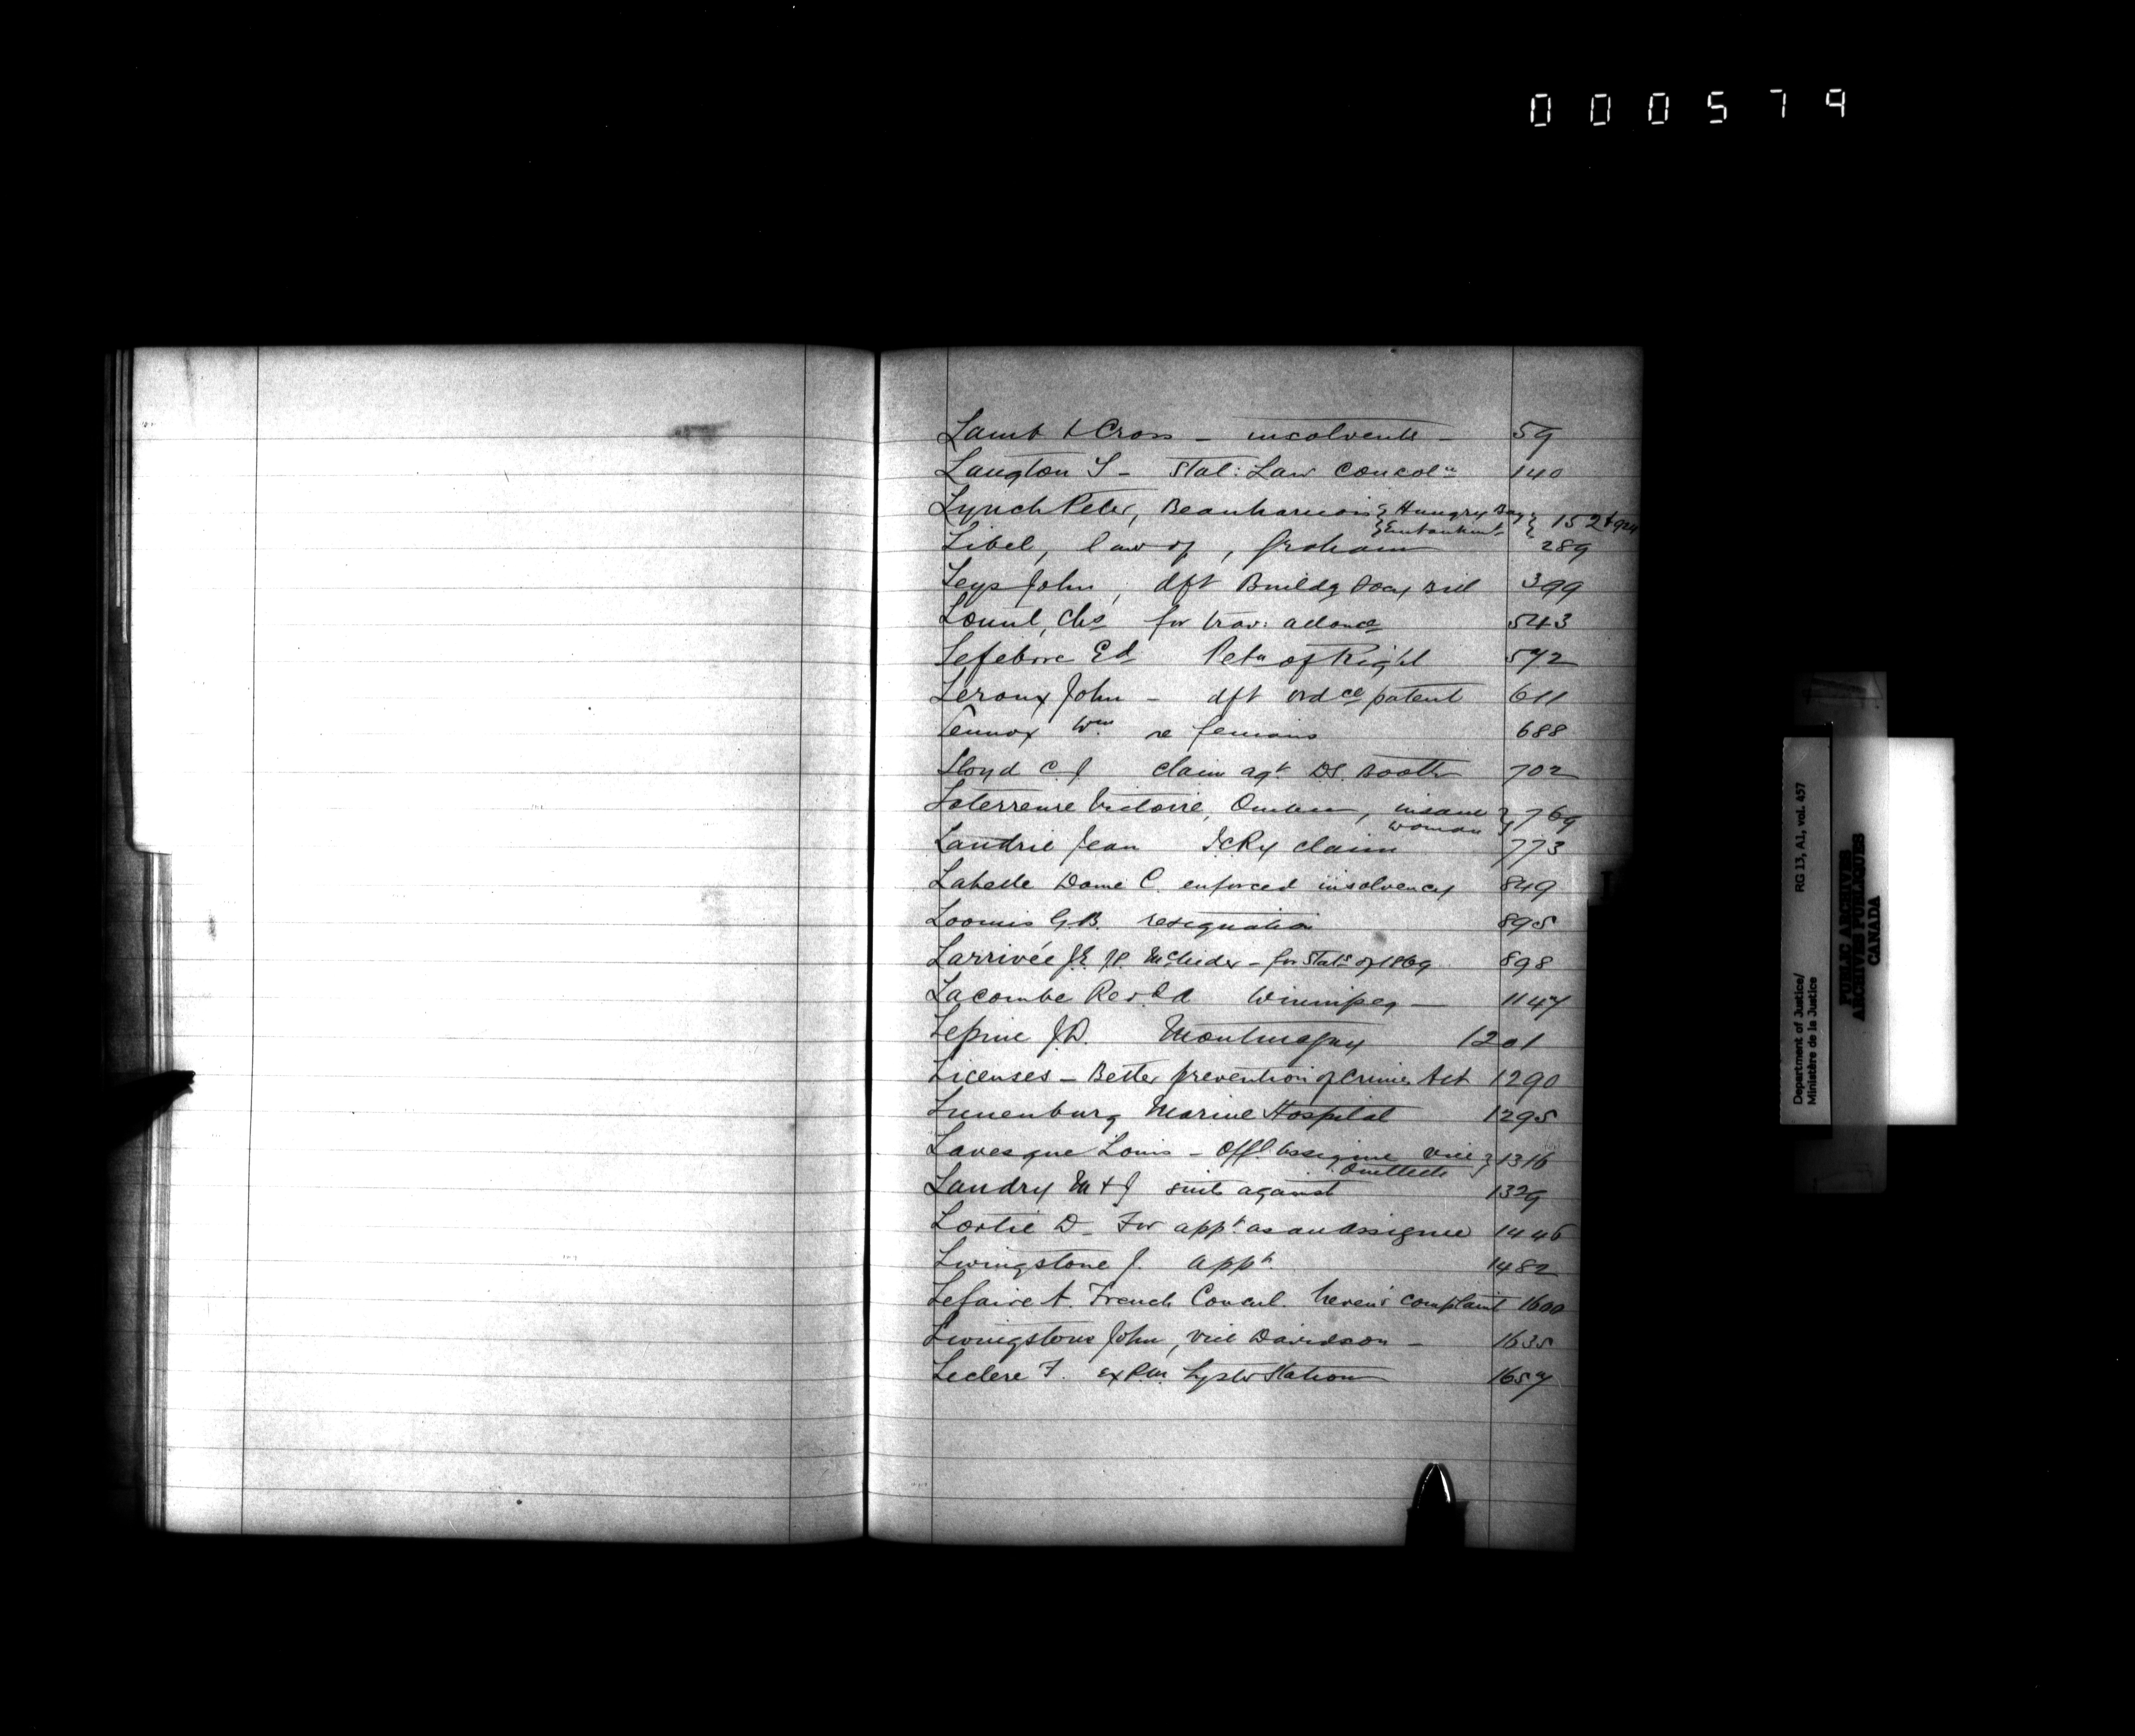 000579
Lamb & Cross - insolvents - 59
Langton T - Stat: Law Consoln 140
Lynch Peter, Beauharnois } Hungry Bay } 152 & 924
} Embankmt
Libel, law of, Graham 289
Leys John, dft Buildg Socy Bill 399
Lount, Chs for trav: allowce 543
Lefebvre Ed Petn of Right 592
Leroux John - dft ordce patent 611
Lennox Wm re fenians 688
Lloyd C. J claim agt DS. Booth 702
Laterreure Victoire, Quebec, insane } 769
woman }
Landrie Jean IcRy claim 773
Labelle Dame C. enforced insolvency 849
Loomis G.B. resignation 895
Larrivée J.E. J.P. - for Stats of 1869 898
Lacombe Revd Winnipeg - 1147
Lepine J.D. Montmagny 1201
Licenses - Better prevention of Crimes Act 1290
Lunenburg Marine Hospital 1295
Lavesque Louis - Offl Assignee vice } 1316
Ouellette
Landry M & J suit against 1329
Lortie D - For appt as an Assignee 1446
Livingstone J. appt 1482
Lefaive A. French Consul. complaint 1600
Livingstone John, vice Davidson - 1635
Leclerc F. ex P.M. Lyster Station 1657
Department of Justice/ RG 13, A1, vol. 457
Ministère de la Justice
PUBLIC ARCHIVES
ARCHIVES PUBLIQUES
CANADA